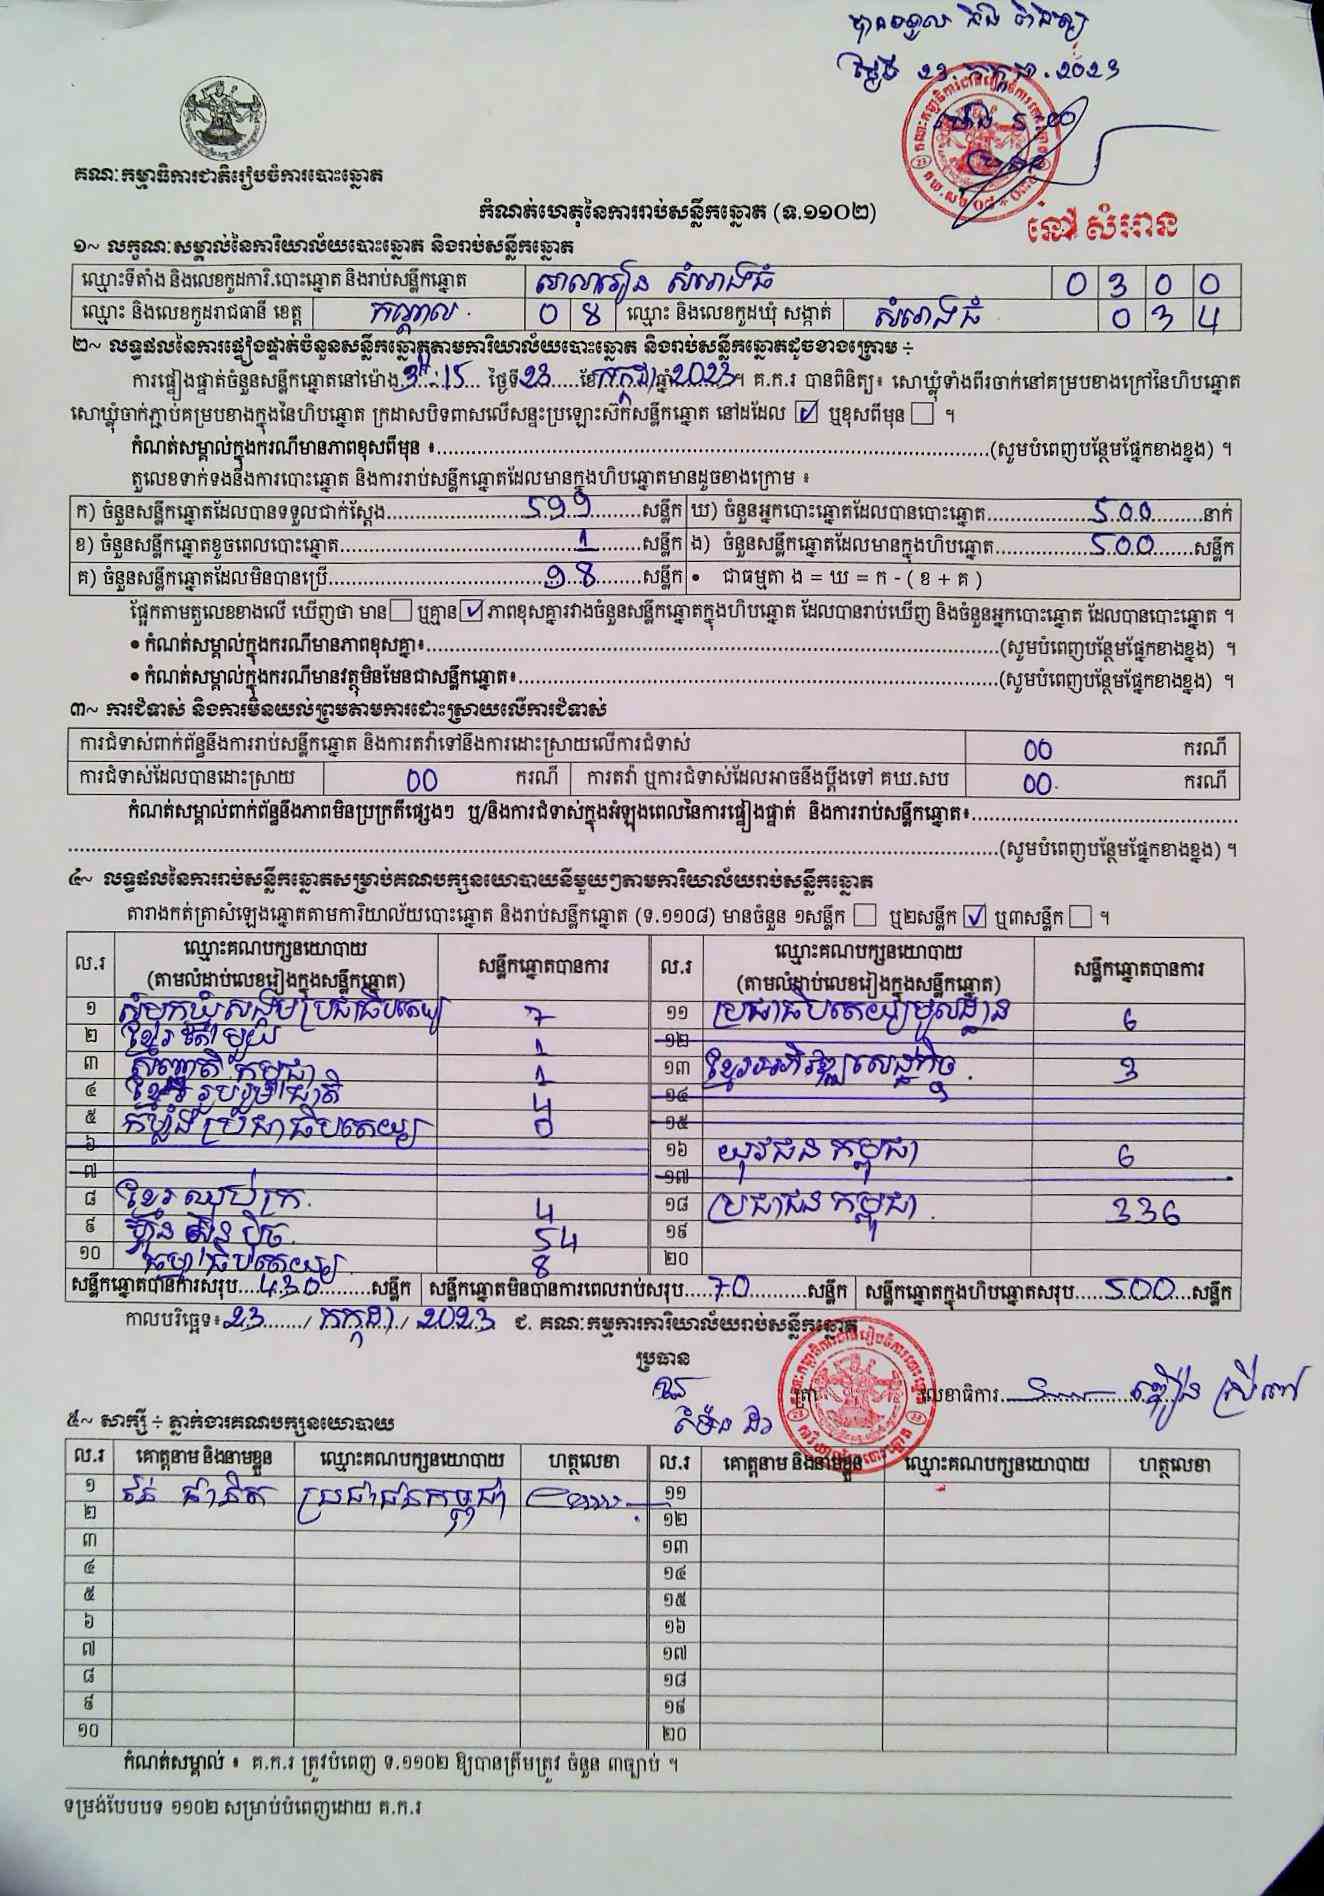 ថ្ងៃទី 23. កក្កដា. 2023
គណៈកម្មាធិការជាតិរៀបចំការបោះឆ្នោត
នៅ សំអាន
កំណត់ហេតុនៃការរាប់សន្លឹកឆ្នោត (ទ.១១០២)
១~ លក្ខណៈសម្គាល់នៃការិយាល័យបោះឆ្នោត និងរាប់សន្លឹកឆ្នោត
ឈ្មោះទីតាំង និងលេខកូដការិ.បោះឆ្នោត និងរាប់សន្លឹកឆ្នោត សាលារៀន សំរោងធំ 0 3 0 0
ឈ្មោះ និងលេខកូដរាជធានី ខេត្ត កណ្តាល 0 8 ឈ្មោះ និងលេខកូដឃុំ សង្កាត់ សំរោងធំ 0 3 4
២~ លទ្ធផលនៃការផ្ទៀងផ្ទាត់ចំនួនសន្លឹកឆ្នោតតាមការិយាល័យបោះឆ្នោត និងរាប់សន្លឹកឆ្នោតដូចខាងក្រោម ÷
ការផ្ទៀងផ្ទាត់ចំនួនសន្លឹកឆ្នោតនៅម៉ោង 3:15 ថ្ងៃទី 23 ខែ កក្កដា ឆ្នាំ 2023 ។ គ.ក.រ បានពិនិត្យ៖ សោឃ្លុំទាំងពីរចាក់នៅគម្របខាងក្រៅនៃហិបឆ្នោត
សោឃ្លុំចាក់ភ្ជាប់គម្របខាងក្នុងនៃហិបឆ្នោត ក្រដាសបិទពាសលើសន្ទះប្រឡោះស៊កសន្លឹកឆ្នោត នៅដដែល ☑ ឬខុសពីមុន ☐ ។
កំណត់សម្គាល់ក្នុងករណីមានភាពខុសពីមុន ៖ (សូមបំពេញបន្ថែមផ្នែកខាងខ្នង) ។
តួលេខទាក់ទងនឹងការបោះឆ្នោត និងការរាប់សន្លឹកឆ្នោតដែលមានក្នុងហិបឆ្នោតមានដូចខាងក្រោម ៖
ក) ចំនួនសន្លឹកឆ្នោតដែលបានទទួលជាក់ស្តែង 599 សន្លឹក ឃ) ចំនួនអ្នកបោះឆ្នោតដែលបានបោះឆ្នោត 500 នាក់
ខ) ចំនួនសន្លឹកឆ្នោតខូចពេលបោះឆ្នោត 1 សន្លឹក ង) ចំនួនសន្លឹកឆ្នោតដែលមានក្នុងហិបឆ្នោត 500 សន្លឹក
គ) ចំនួនសន្លឹកឆ្នោតដែលមិនបានប្រើ 98 សន្លឹក • ជាធម្មតា ង = ឃ = ក - ( ខ + គ )
ផ្អែកតាមតួលេខខាងលើ ឃើញថា មាន ☐ ឬគ្មាន ☑ ភាពខុសគ្នារវាងចំនួនសន្លឹកឆ្នោតក្នុងហិបឆ្នោត ដែលបានរាប់ឃើញ និងចំនួនអ្នកបោះឆ្នោត ដែលបានបោះឆ្នោត ។
• កំណត់សម្គាល់ក្នុងករណីមានភាពខុសគ្នា៖ (សូមបំពេញបន្ថែមផ្នែកខាងខ្នង) ។
• កំណត់សម្គាល់ក្នុងករណីមានវត្ថុមិនមែនជាសន្លឹកឆ្នោត៖ (សូមបំពេញបន្ថែមផ្នែកខាងខ្នង) ។
៣~ ការជំទាស់ និងការមិនយល់ព្រមតាមការដោះស្រាយលើការជំទាស់
ការជំទាស់ពាក់ព័ន្ធនឹងការរាប់សន្លឹកឆ្នោត និងការតវ៉ាទៅនឹងការដោះស្រាយលើការជំទាស់ 00 ករណី
ការជំទាស់ដែលបានដោះស្រាយ 00 ករណី ការតវ៉ា ឬការជំទាស់ដែលអាចនឹងប្តឹងទៅ គឃ.សប 00 ករណី
កំណត់សម្គាល់ពាក់ព័ន្ធនឹងភាពមិនប្រក្រតីផ្សេងៗ ឬ/និងការជំទាស់ក្នុងអំឡុងពេលនៃការផ្ទៀងផ្ទាត់ និងការរាប់សន្លឹកឆ្នោត៖
(សូមបំពេញបន្ថែមផ្នែកខាងខ្នង) ។
៤~ លទ្ធផលនៃការរាប់សន្លឹកឆ្នោតសម្រាប់គណបក្សនយោបាយនីមួយៗតាមការិយាល័យរាប់សន្លឹកឆ្នោត
តារាងកត់ត្រាសំឡេងឆ្នោតតាមការិយាល័យបោះឆ្នោត និងរាប់សន្លឹកឆ្នោត (ទ.១១០៨) មានចំនួន ១សន្លឹក ☐ ឬ២សន្លឹក ☑ ឬ៣សន្លឹក ☐ ។
ល.រ ឈ្មោះគណបក្សនយោបាយ សន្លឹកឆ្នោតបានការ ល.រ ឈ្មោះគណបក្សនយោបាយ សន្លឹកឆ្នោតបានការ
(តាមលំដាប់លេខរៀងក្នុងសន្លឹកឆ្នោត) (តាមលំដាប់លេខរៀងក្នុងសន្លឹកឆ្នោត)
១ សំបុកឃ្មុំសង្គមប្រជាធិបតេយ្យ 7 ១១ ប្រជាធិបតេយ្យមូលដ្ឋាន 6
២ ខ្មែរតែមួយ 1 ១២
៣ សញ្ជាតិកម្ពុជា 1 ១៣ ខ្មែរអភិវឌ្ឍសេដ្ឋកិច្ច 3
៤ ខ្មែររួបរួមជាតិ 4 ១៤
៥ កម្លាំងប្រជាធិបតេយ្យ 0 ១៥
៦ ១៦ យុវជនកម្ពុជា 6
៧ ១៧
៨ ខ្មែរឈប់ក្រ 4 ១៨ ប្រជាជនកម្ពុជា 336
៩ ហ្វ៊ុនស៊ិនប៉ិច 54 ១៩
១០ ធម្មាធិបតេយ្យ 8 ២០
សន្លឹកឆ្នោតបានការសរុប 430 សន្លឹក សន្លឹកឆ្នោតមិនបានការពេលរាប់សរុប 70 សន្លឹក សន្លឹកឆ្នោតក្នុងហិបឆ្នោតសរុប 500 សន្លឹក
កាលបរិច្ឆេទ៖ 23 / កក្កដា / 2023 ជ. គណៈកម្មការការិយាល័យរាប់សន្លឹកឆ្នោត
ប្រធាន
ត្រា លេខាធិការ
៥~ សាក្សី ÷ ភ្នាក់ងារគណបក្សនយោបាយ
ល.រ គោត្តនាម និងនាមខ្លួន ឈ្មោះគណបក្សនយោបាយ ហត្ថលេខា ល.រ គោត្តនាម និងនាមខ្លួន ឈ្មោះគណបក្សនយោបាយ ហត្ថលេខា
១ ប្រជាជនកម្ពុជា ១១
២ ១២
៣ ១៣
៤ ១៤
៥ ១៥
៦ ១៦
៧ ១៧
៨ ១៨
៩ ១៩
១០ ២០
កំណត់សម្គាល់ ៖ គ.ក.រ ត្រូវបំពេញ ទ.១១០២ ឱ្យបានត្រឹមត្រូវ ចំនួន ៣ច្បាប់ ។
ទម្រង់បែបបទ ១១០២ សម្រាប់បំពេញដោយ គ.ក.រ